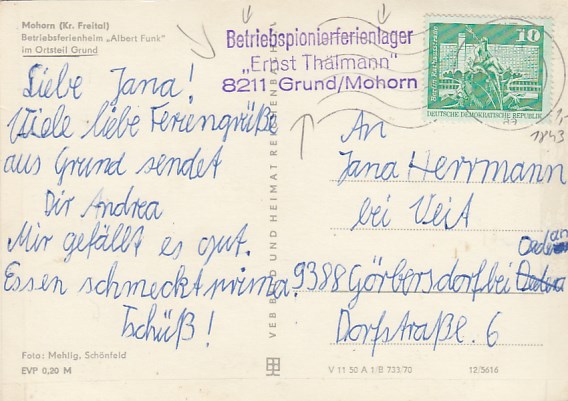 Mohorn (Kr. Freital)
Betriebsferienheim „Albert Funk"
im Ortsteil Grund
Betriebspionierferienlager
„Ernst Thälmann"
8211 Grund/Mohorn
10
DEUTSCHE DEMOKRATISCHE REPUBLIK
Liebe Jana!
Viele liebe Feriengrüße
aus Grund sendet
Dir Andrea
Mir gefällt es gut.
Essen schmeckt prima.
Tschüß!
An
Jana Herrmann
bei Veit
9388 Görbersdorf bei
Dorfstraße 6
Foto: Mehlig, Schönfeld
EVP 0,20 M
VEB BILD UND HEIMAT REICHENBACH
V 11 50 A 1/B 733/70 12/5616